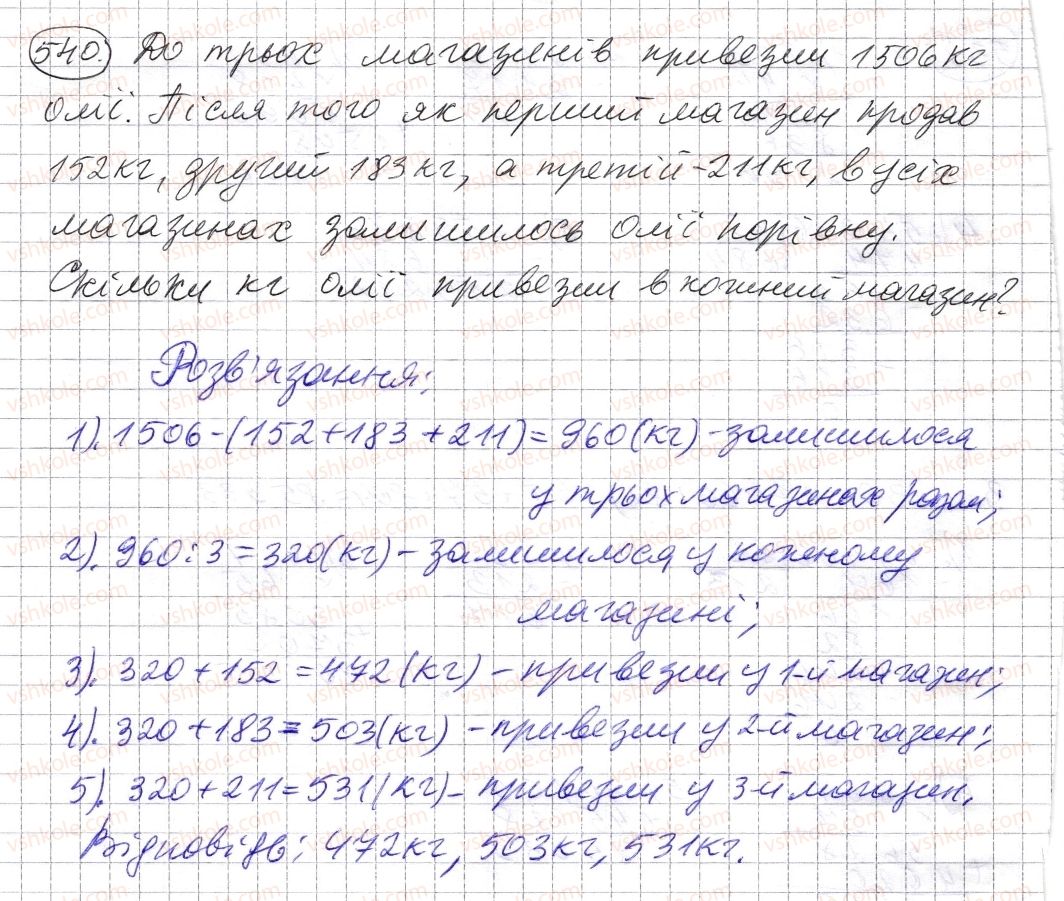 540. До трьох магазинів привезли 1506 кг
олії. Після того як перший магазин продав
152 кг, другий 183 кг, а третій - 211 кг, в усіх
магазинах залишилось олії порівну.
Скільки кг олії привезли в кожний магазин?
Розв'язання:
1). 1506 - (152 + 183 + 211) = 960 (кг) - залишилося
у трьох магазинах разом;
2). 960 : 3 = 320 (кг) - залишилося у кожному
магазині;
3). 320 + 152 = 472 (кг) - привезли у 1-й магазин;
4). 320 + 183 = 503 (кг) - привезли у 2-й магазин;
5). 320 + 211 = 531 (кг) - привезли у 3-й магазин.
Відповідь: 472 кг, 503 кг, 531 кг.
vshkole.com